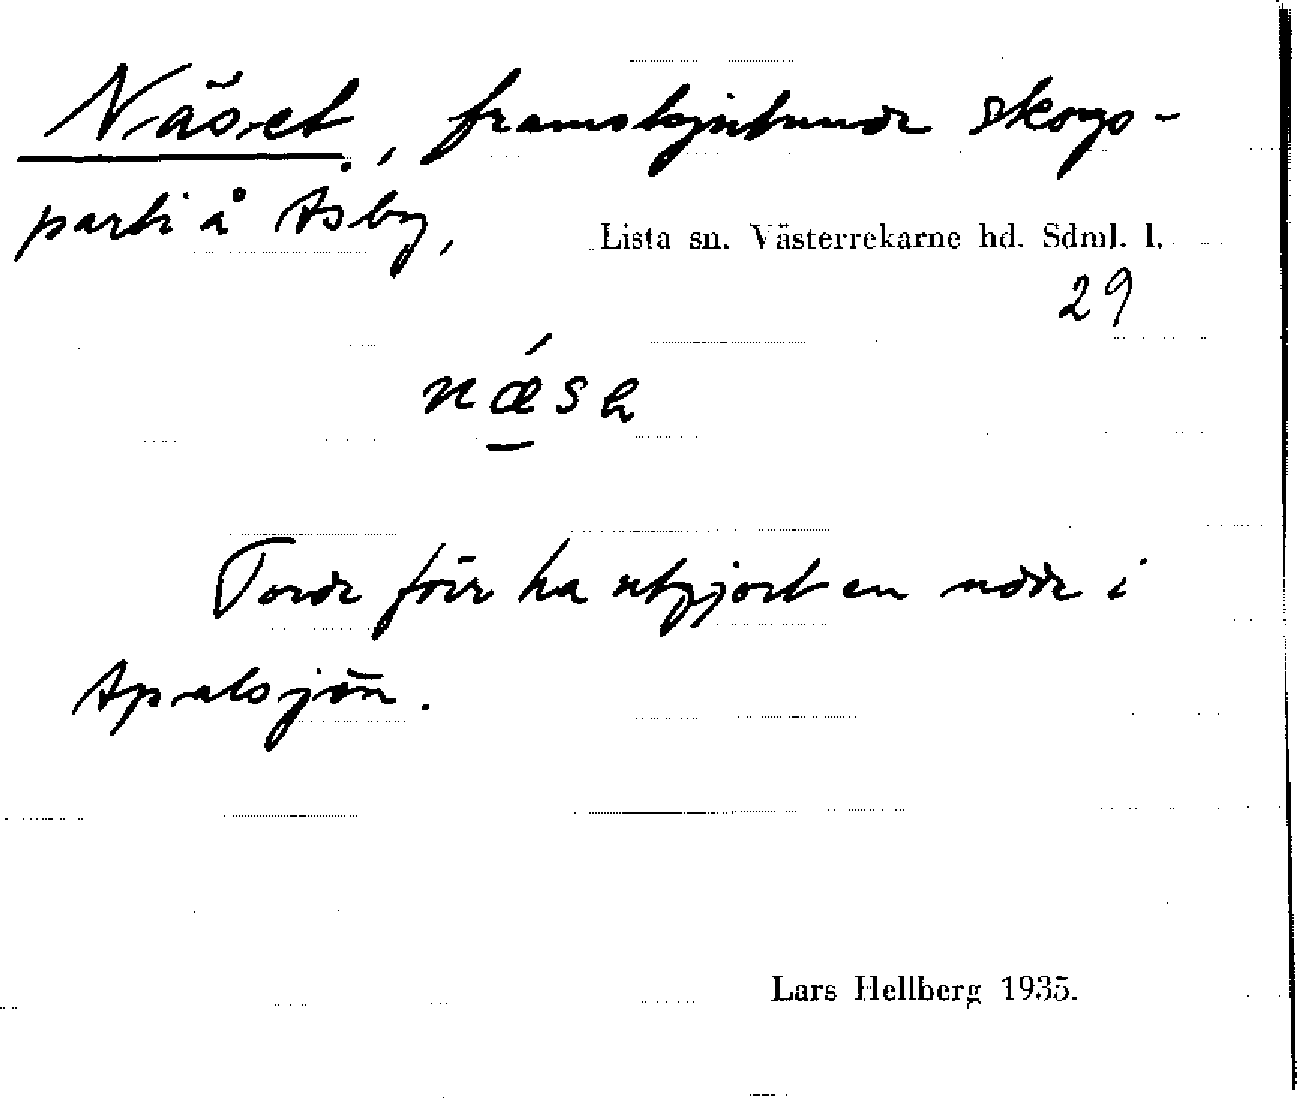 Näset, framskjutande skogs-
parti å Åsby,
Lista sn. Västerrekarne hd. Sdml. l.
29
Torde förr ha utgjort en udde i
Apalsjön.
Lars Hellberg 1935.